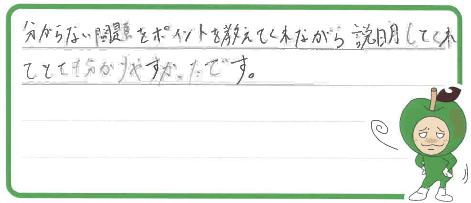 分からない問題をポイントを教えてくれながら説明してくれ
てとても分かりやすかったです。